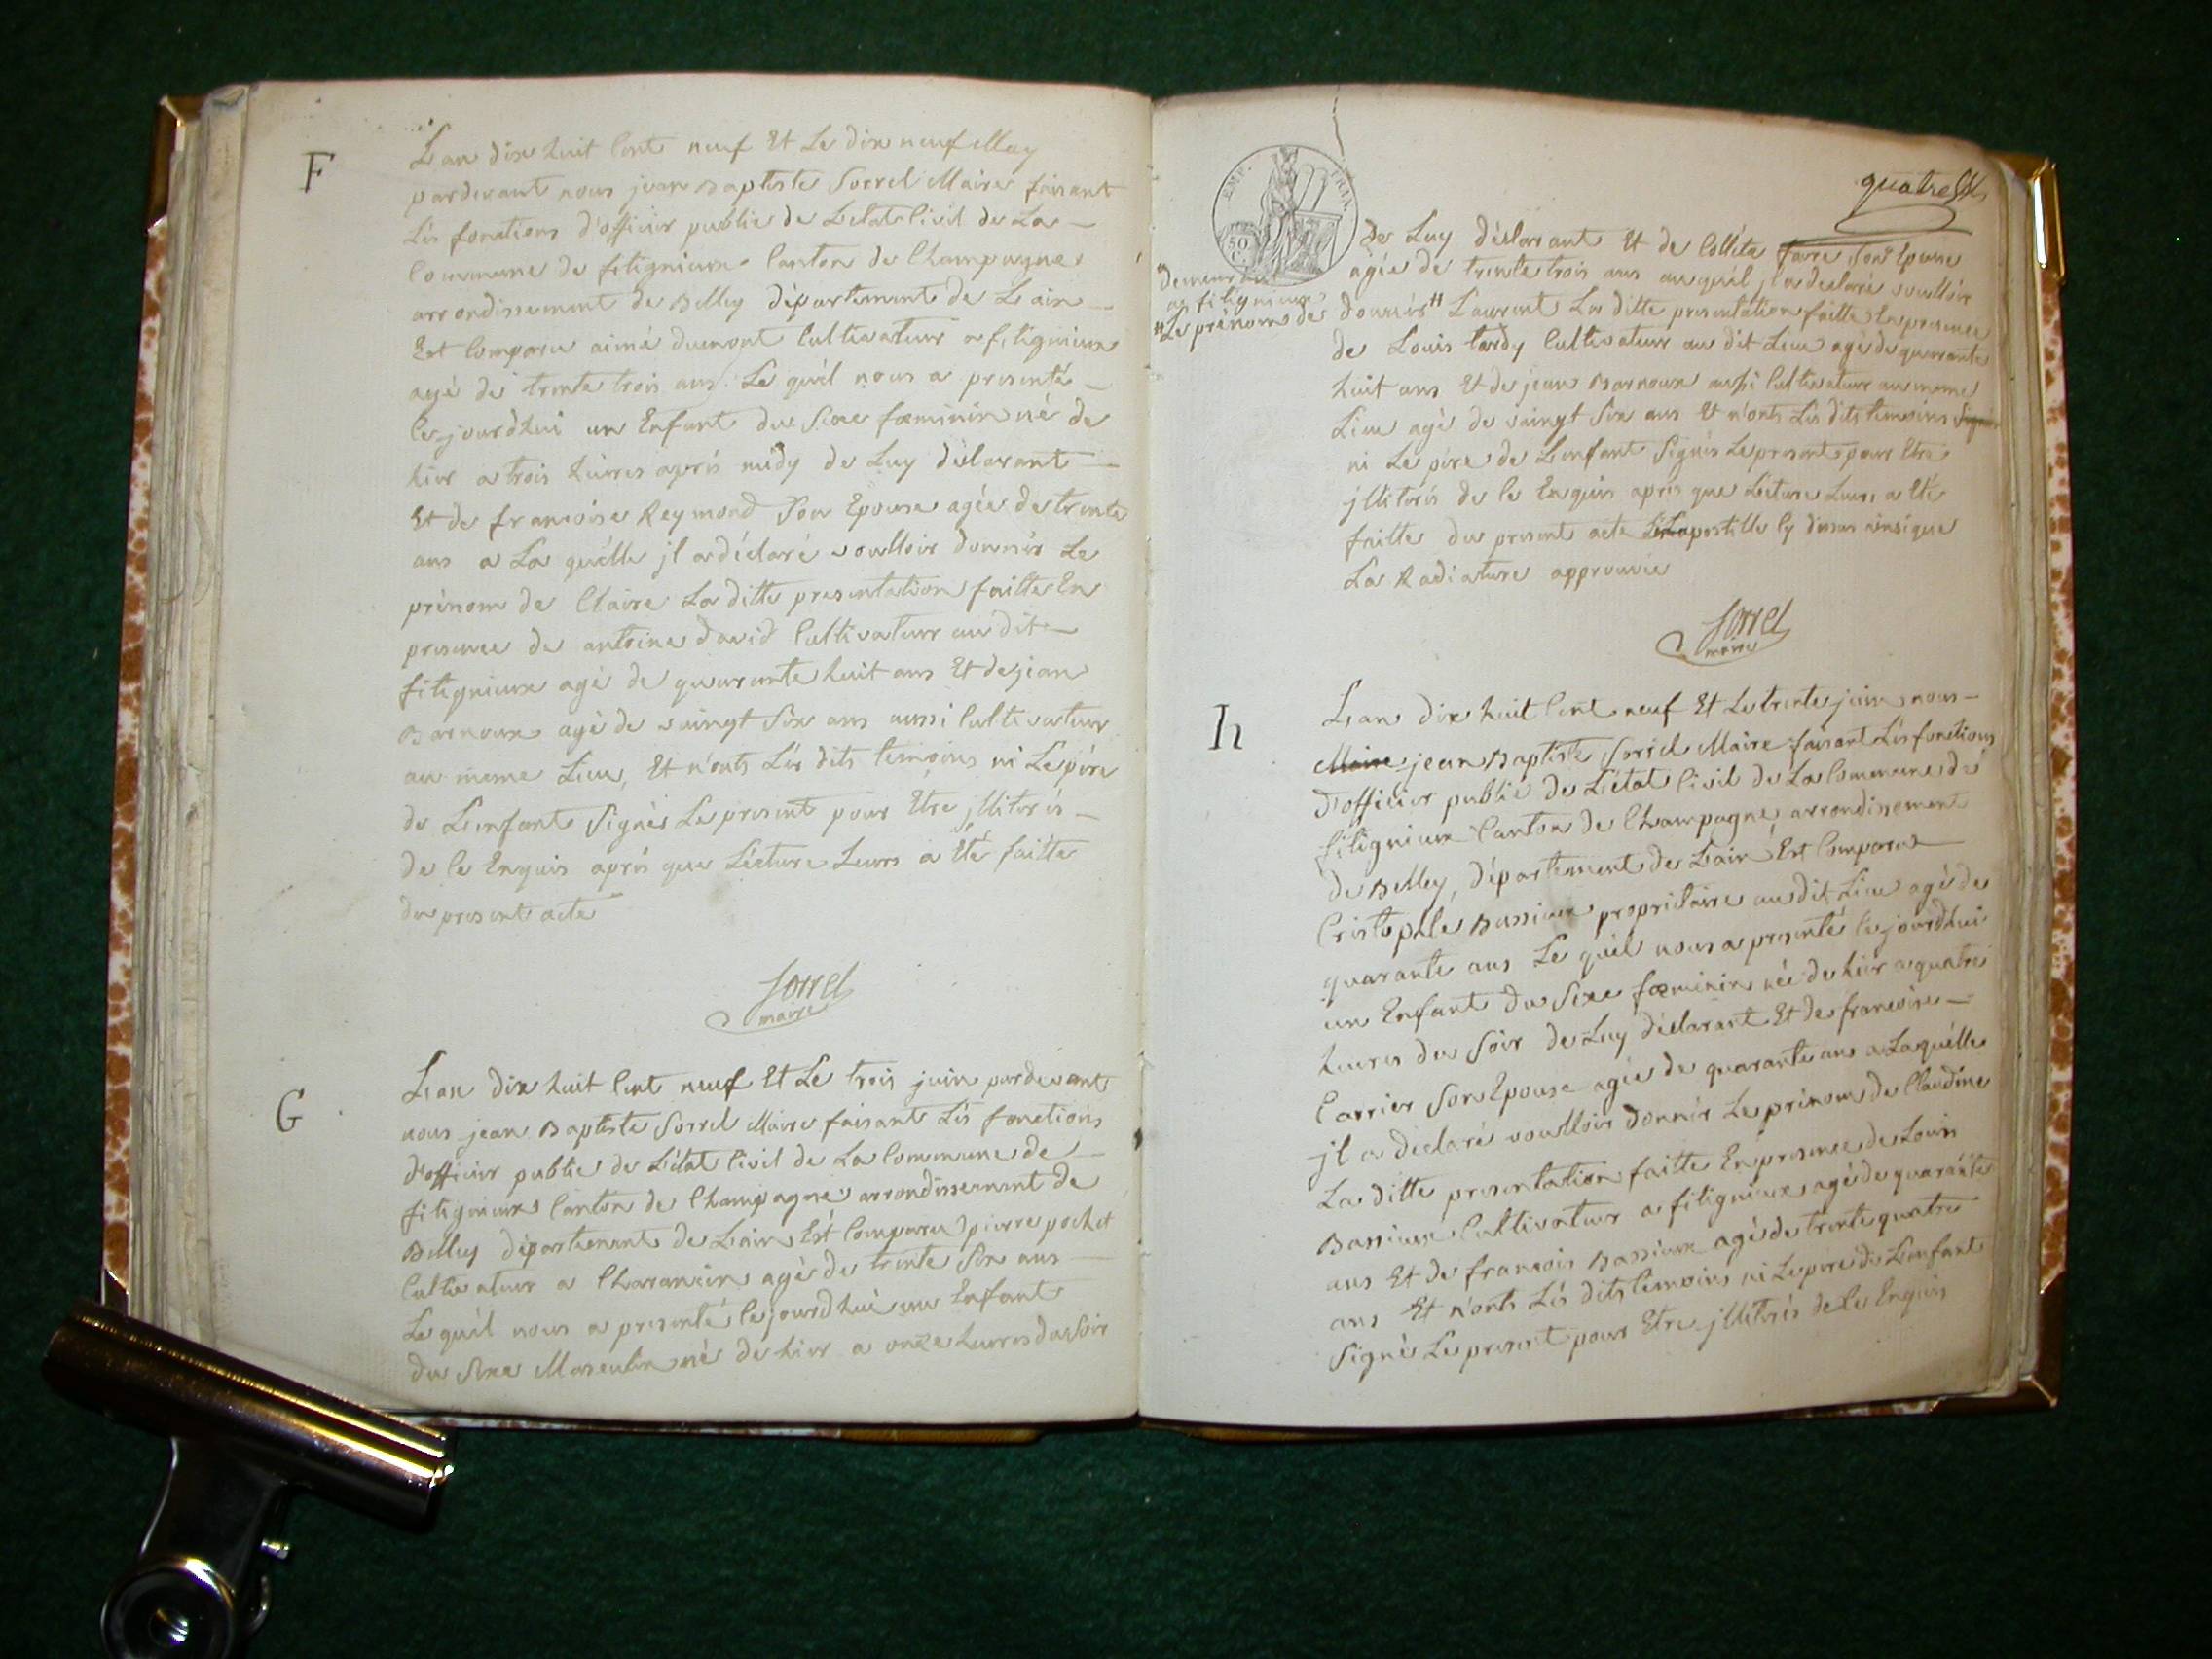 F
L'an dix huit Cent neuf Et Le dix neuf May
pardevant nous jean Baptiste Sorrel Maire faisant
Lés fonctions d'officier public de L'état Civil de La —
Commune de fitignieux Canton de Champagne
arrondissement de Belley département de L'ain —
Est Comparu aimé dumont Cultivateur a fitignieux
agé de trente trois ans Le quél nous a presenté —
Cejourdhui un Enfant du Sexe fœminin né de
hier a trois heures aprés midy de Luy déclarant —
Et de francoise Reymond Son Epouse agée de trente
ans a La quélle jl a déclaré voulloir donnér Le
prénom de Claire La ditte presentation faitte En
presence de antoine david Cultivateur au dit —
fitignieux agé de quarante huit ans Et de jean
Barnoux agé de vaingt Six ans aussi Cultivateur
au meme Lieu, Et n'onts Lés dits temoins ni Le pére
de L'enfant Signés Le present pour Etre jllitérés —
de Ce Enquis aprés que Lécture Leurs a Eté faitte
du present acte
Sorrel
maire
G
L'an dix huit Cent neuf Et Le trois juin pardevant
nous jean Baptiste Sorrel Maire faisant Lés fonctions
d'officier public de L'état Civil de La Commune de —
fitignieux Canton de Champagne arrondissement de
Belley département de L'ain Est Comparu pierre pochet
Cultivateur a Charancin agé de trente Six ans —
Le quél nous a presenté Cejourdhui un Enfant
du Sexe Masculin né de hier a onze heures du Soir
quatre
EMP. FRAN.
50 C.
de Luy déclarant Et de Colléta favre Son Epouse
demeurant
a fitignieux
agée de trente trois ans au quél jl a déclaré voullóir
"Le prénom de
donnér" Laurent La ditte presentation faitte En presence
de Louis tardy Cultivateur au dit Lieu agé de quarante
huit ans Et de jean Barnoux aussi Cultivateur au meme
Lieu agé de vaingt Six ans Et n'onts Lés dits temoins
ni Le pére de L'enfant Signés Le present pour Etre
jllitérés de Ce Enquis aprés que Lécture Leurs a Eté
faitte du present acte L'apostille Cy dessus ainsi que
La Radiature approuvée
Sorrel
maire
h
L'an dix huit Cent neuf Et Le trente juin nous —
Maire jean Baptiste Sorrel Maire faisant Lés fonctions
d'officier public de L'état Civil de La Commune de
fitignieux Canton de Champagne arrondissement
de Belley, département de L'ain Est Comparu —
Cristophle Bassieux propriétaire au dit Lieu agé de
quarante ans Le quél nous a presenté Cejourdhui
un Enfant du Sexe fœminin née de hiér a quatre
heures du Soir de Luy déclarant Et de francoise —
Carrier Son Epouse agée de quarante ans a Laquélle
jl a declaré voulloir donnér Le prénom de Claudine
La ditte presentation faitte En presence de Louis
Bassieux Cultivateur a fitignieux agé de quarante
ans Et de francois Bassieux agé de trente quatre
ans Et n'onts Lés dits temoins ni Le pere de L'enfant
Signé Le present pour Etre jllitérés de Ce Enquis